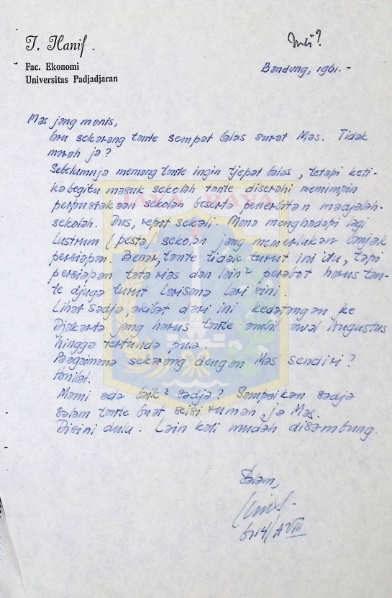 T. Hanif.
Fac. Ekonomi
Universitas Padjadjaran
Mei?
Bandung, 1961.-
Mas jang manis,
baru sekarang tante sempat balas surat Mas. Tidak
marah ja?
Sebelumnja memang tante ingin tjepat balas, tetapi keti-
ka begitu masuk sekolah tante diserahi memimpin
perpustakaan sekolah beserta penerbitan madjalah
sekolah. Dus, repot sekali. Mana menghadapi lagi
Lustrum (pesta) sekolah jang memerlukan banjak
persiapan. Benar, tante tidak turut ini itu, tapi
persiapan tata rias dan lain² perabot harus tan-
te djuga turut lari sana lari sini.
Lihat sadja akibat dari ini kedatangan ke
Djakarta jang harus tante ambil awal Augustus
hingga tertunda pula.
Bagaimana sekarang dengan Mas sendiri?
Mami ada baik² sadja? Sampaikan sadja
salam tante buat seisi rumah ja Mas.
Disini dulu. Lain kali mudah disambung.
Salam,